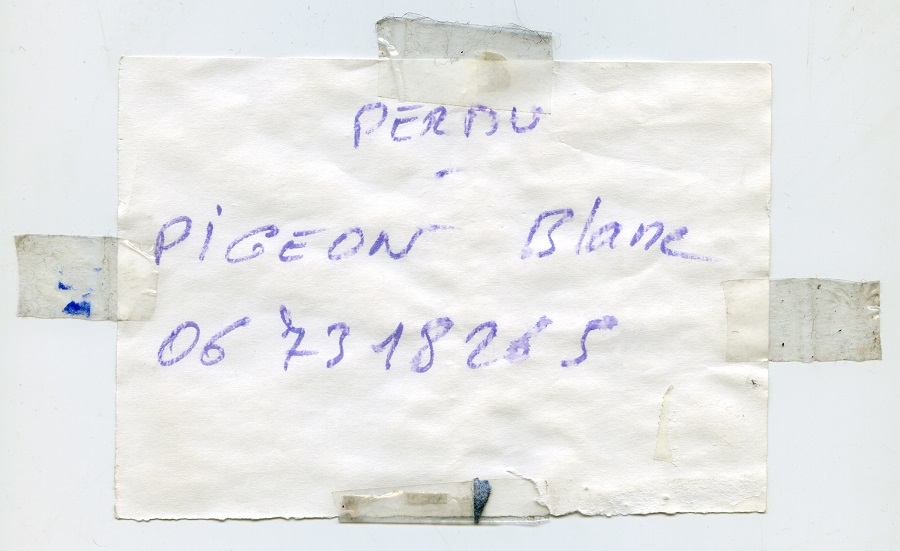 PERDU
-
PiGEON Blanc
06 73 18 26 5